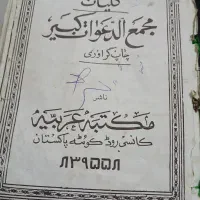 کلیات
مجمع الدعوات کبیر
چاپ کراوزی
ناشر
مکتبة عربية
کانسی روڈ کوئٹہ پاکستان